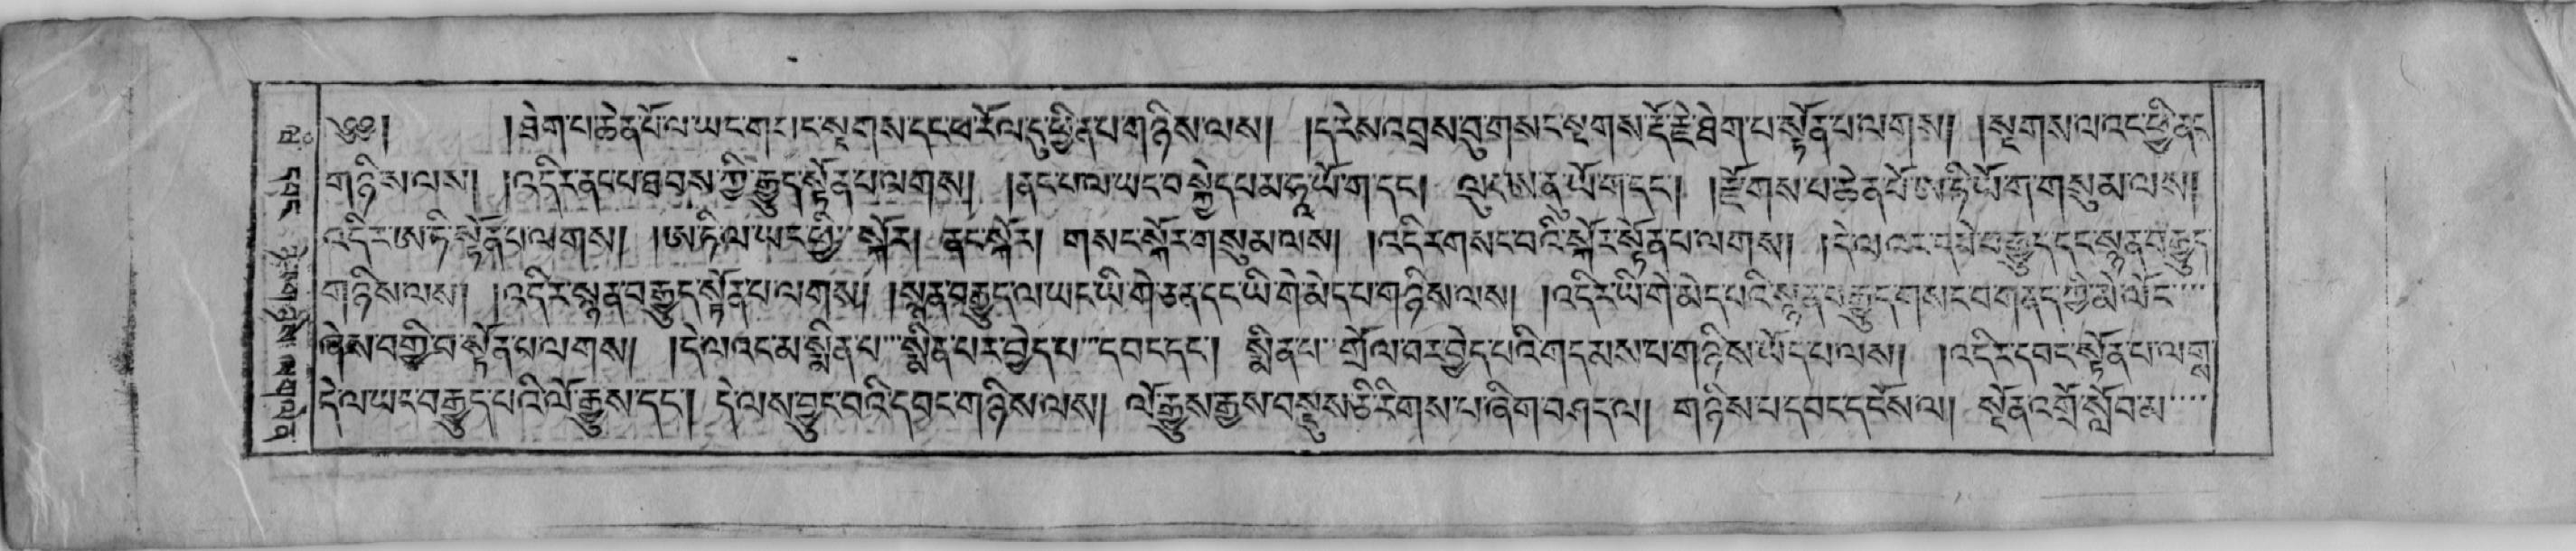 ༄༅། །ཐེག་པ་ཆེན་པོ་ལ་ཡང་གསང་སྔགས་དང་ཕ་རོལ་དུ་ཕྱིན་པ་གཉིས་ལས། །ད་རེས་འབྲས་བུ་གསང་སྔགས་རྡོ་རྗེ་ཐེག་པ་སྟོན་པ་ལགས། །སྔགས་ལ་འང་ཕྱི་ནང་
གཉིས་ལས། །འདིར་ནང་པ་ཐབས་ཀྱི་རྒྱུད་སྟོན་པ་ལགས། །ནང་པ་ལ་ཡང་བསྐྱེད་པ་མ་ཧཱ་ཡོ་ག་དང་། ལུང་ཨ་ནུ་ཡོ་ག་དང་། །རྫོགས་པ་ཆེན་པོ་ཨ་ཏི་ཡོ་ག་གསུམ་ལས།
འདིར་ཨ་ཏི་སྟོན་པ་ལགས། །ཨ་ཏི་ལ་ཡང་ཕྱི་སྐོར། ནང་སྐོར། གསང་སྐོར་གསུམ་ལས། །འདིར་གསང་བའི་སྐོར་སྟོན་པ་ལགས། །དེ་ལ་འང་བཤད་རྒྱུད་དང་སྙན་བརྒྱུད་
གཉིས་ལས། །འདིར་སྙན་བརྒྱུད་སྟོན་པ་ལགས། །སྙན་བརྒྱུད་ལ་ཡང་ཡི་གེ་ཅན་དང་ཡི་གེ་མེད་པ་གཉིས་ལས། །འདིར་ཡི་གེ་མེད་པའི་སྙན་བརྒྱུད་གསང་བ་གནད་ཀྱི་མེ་ལོང་
ཞེས་བགྱི་བ་སྟོན་པ་ལགས། །དེ་ལ་འང་མ་སྨིན་པ་སྨིན་པར་བྱེད་པ་དབང་དང་། སྨིན་པ་གྲོལ་བར་བྱེད་པའི་གདམས་པ་གཉིས་ཡོད་པ་ལས། །འདིར་དབང་སྟོན་པ་ལགས
དེ་ལ་ཡང་བརྒྱུད་པའི་ལོ་རྒྱུས་དང་། དེ་ལས་བྱུང་བའི་དབང་གཉིས་ལས། ལོ་རྒྱུས་རྒྱས་བསྡུས་ཅི་རིགས་པ་ཞིག་བཤད་ལ། གཉིས་པ་དབང་དངོས་ལ། སྔོན་འགྲོ་སློབ་མ་